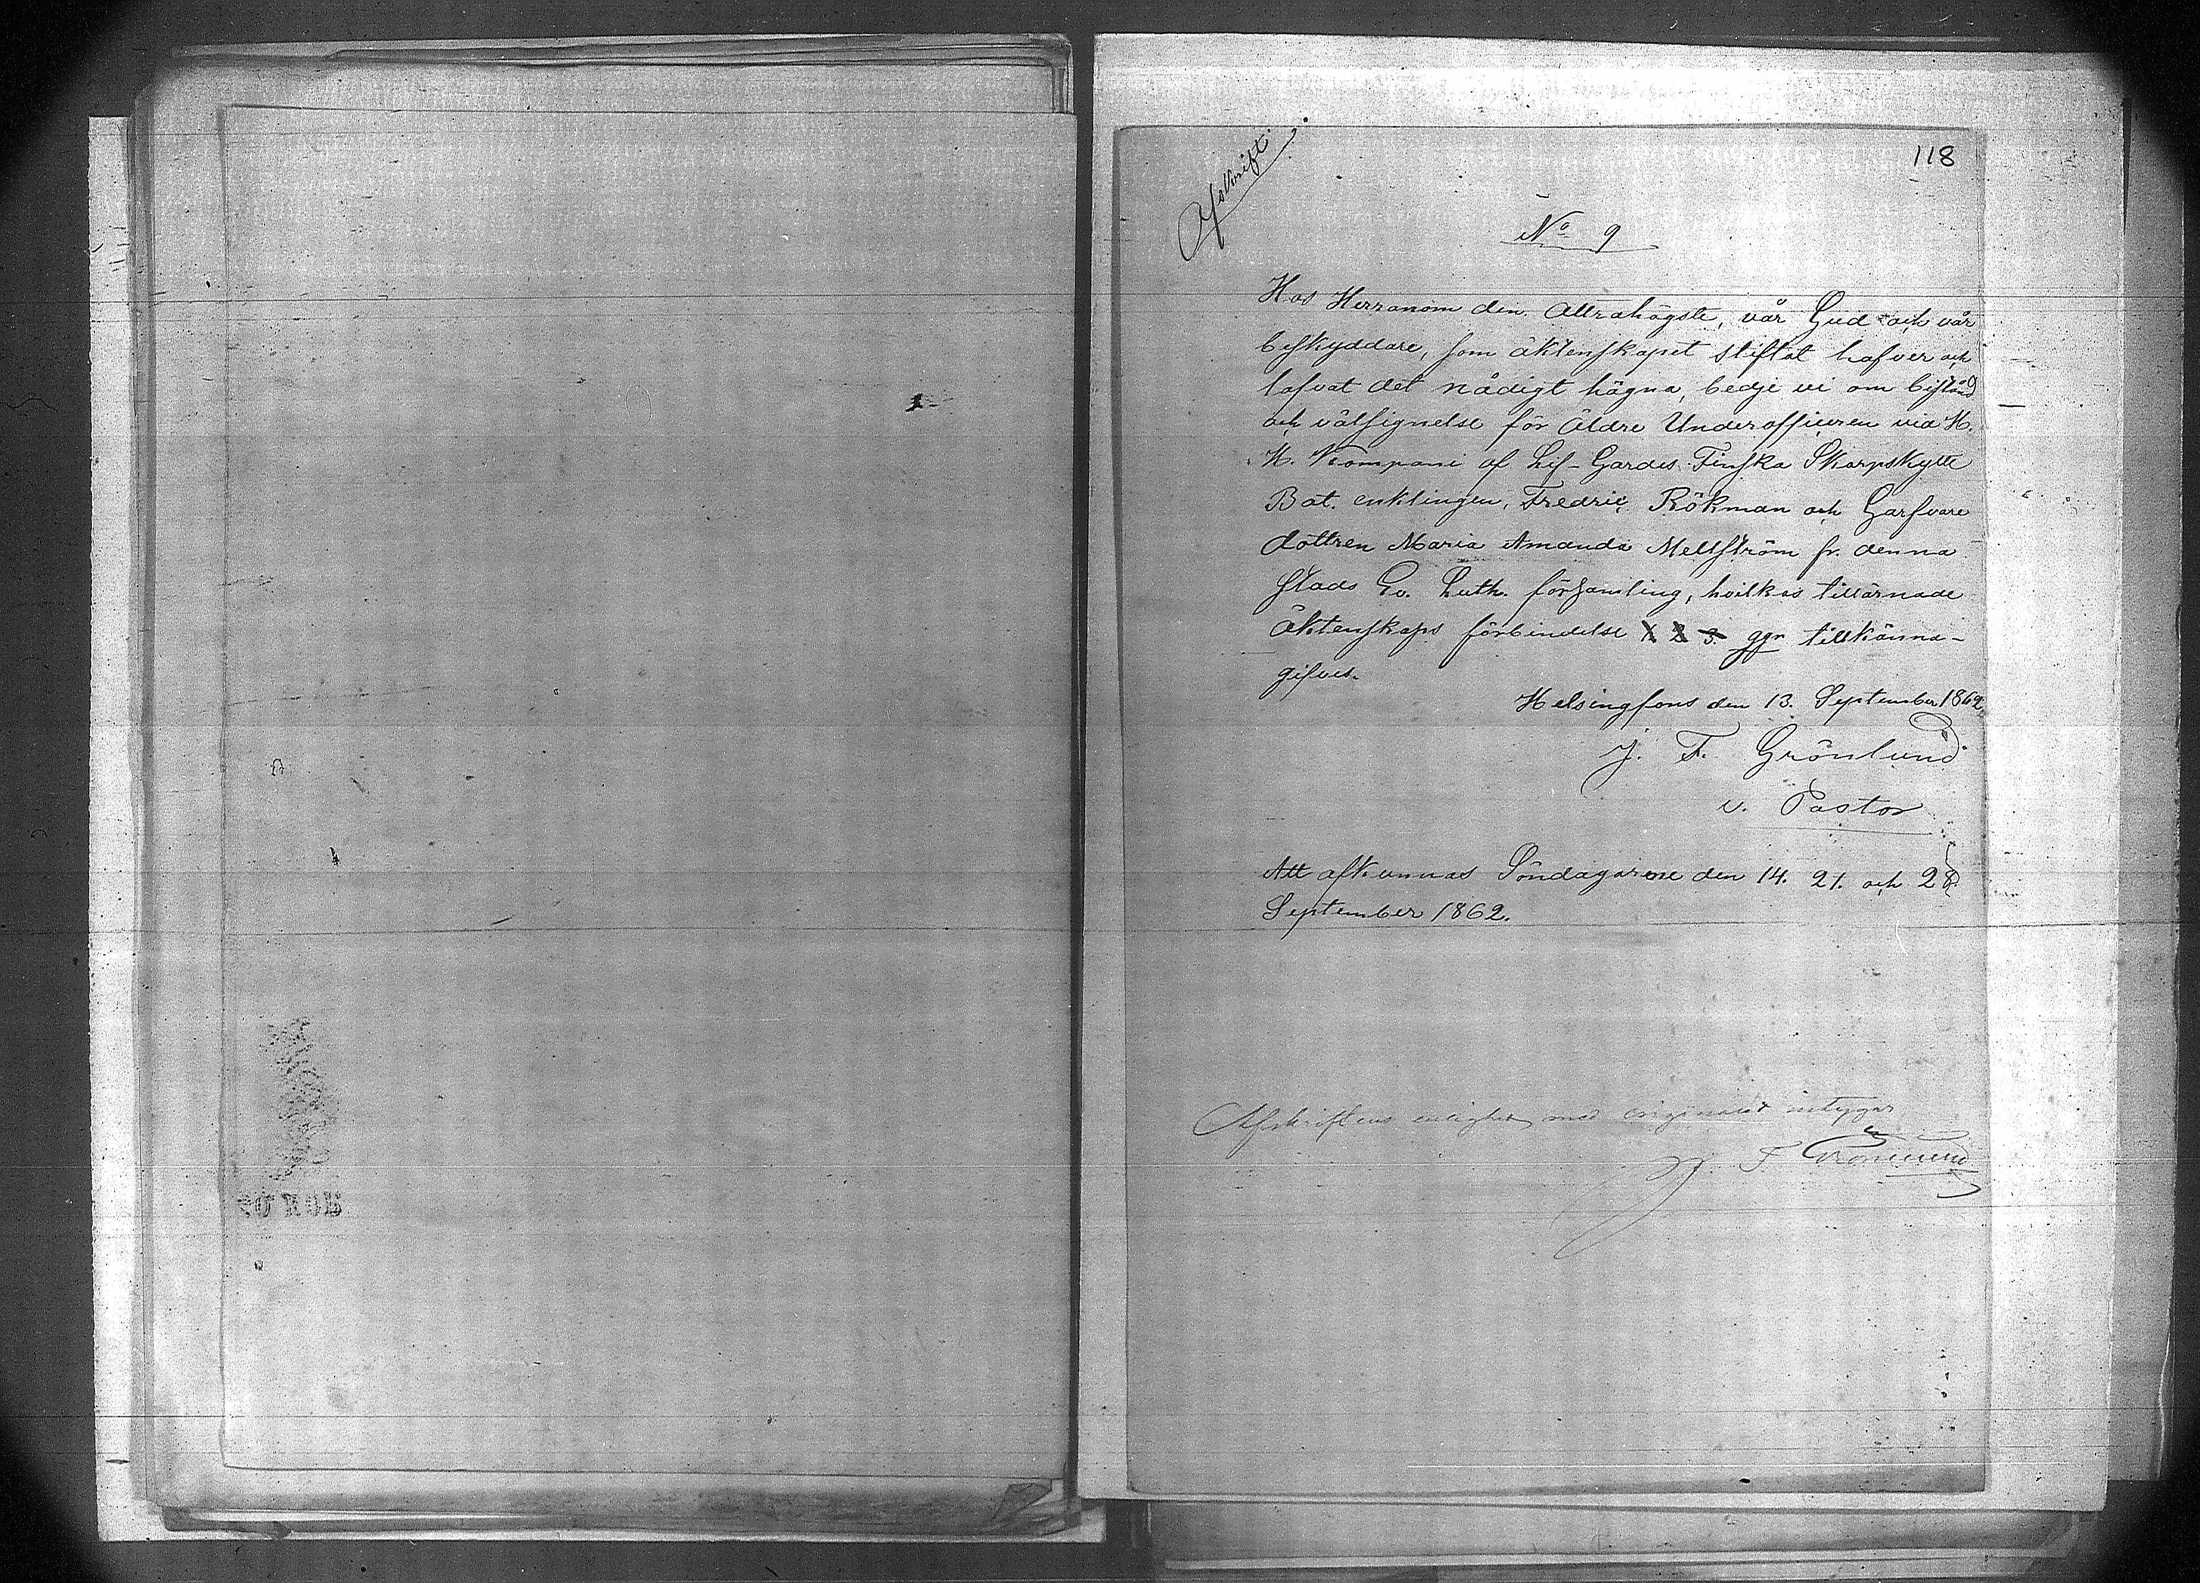 118
Afskrift.
No 9
Hos Herranom den Allrahögste, vår Gud och vår
beskyddare, som äktenskapet stiftat hafver och
lofvat det nådigt hägna, bedje vi om bistånd
och välsignelse för Äldre Underofficeren vid H.
K. Kompani af Lif-Gardes Finska Skarpskytte
Bat. enklingen, Fredric Rökman och Garfvare
dottren Maria Amanda Mellström fr. denna
stads Ev. Luth. församling, hvilkas tillärnade
äktenskaps förbindelse 1. 2. 3. ggn tillkänna-
gifves.
Helsingfors den 13. September 1862
J. F. Grönlund
v. Pastor
Att afkunnas Söndagarne den 14. 21. och 28
September 1862.
Afskriftens enlighet med originalet intygar
J. F. Grönlund